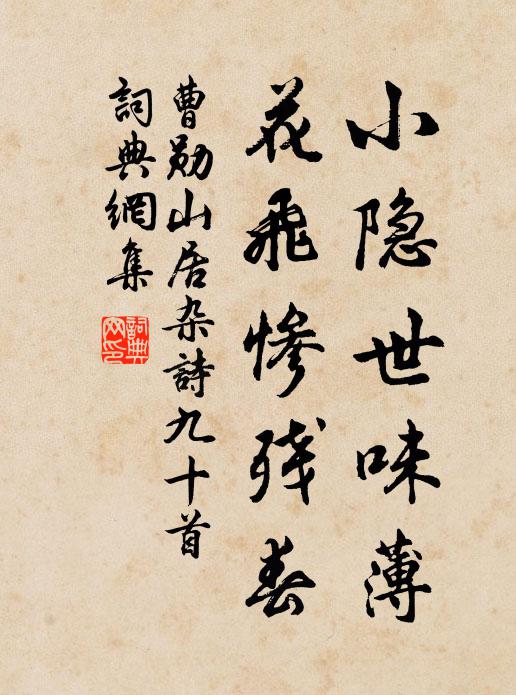 小隐世味薄
花飛惨残春
曹勛山居杂詩九十首
詞典網集
詞典
网印